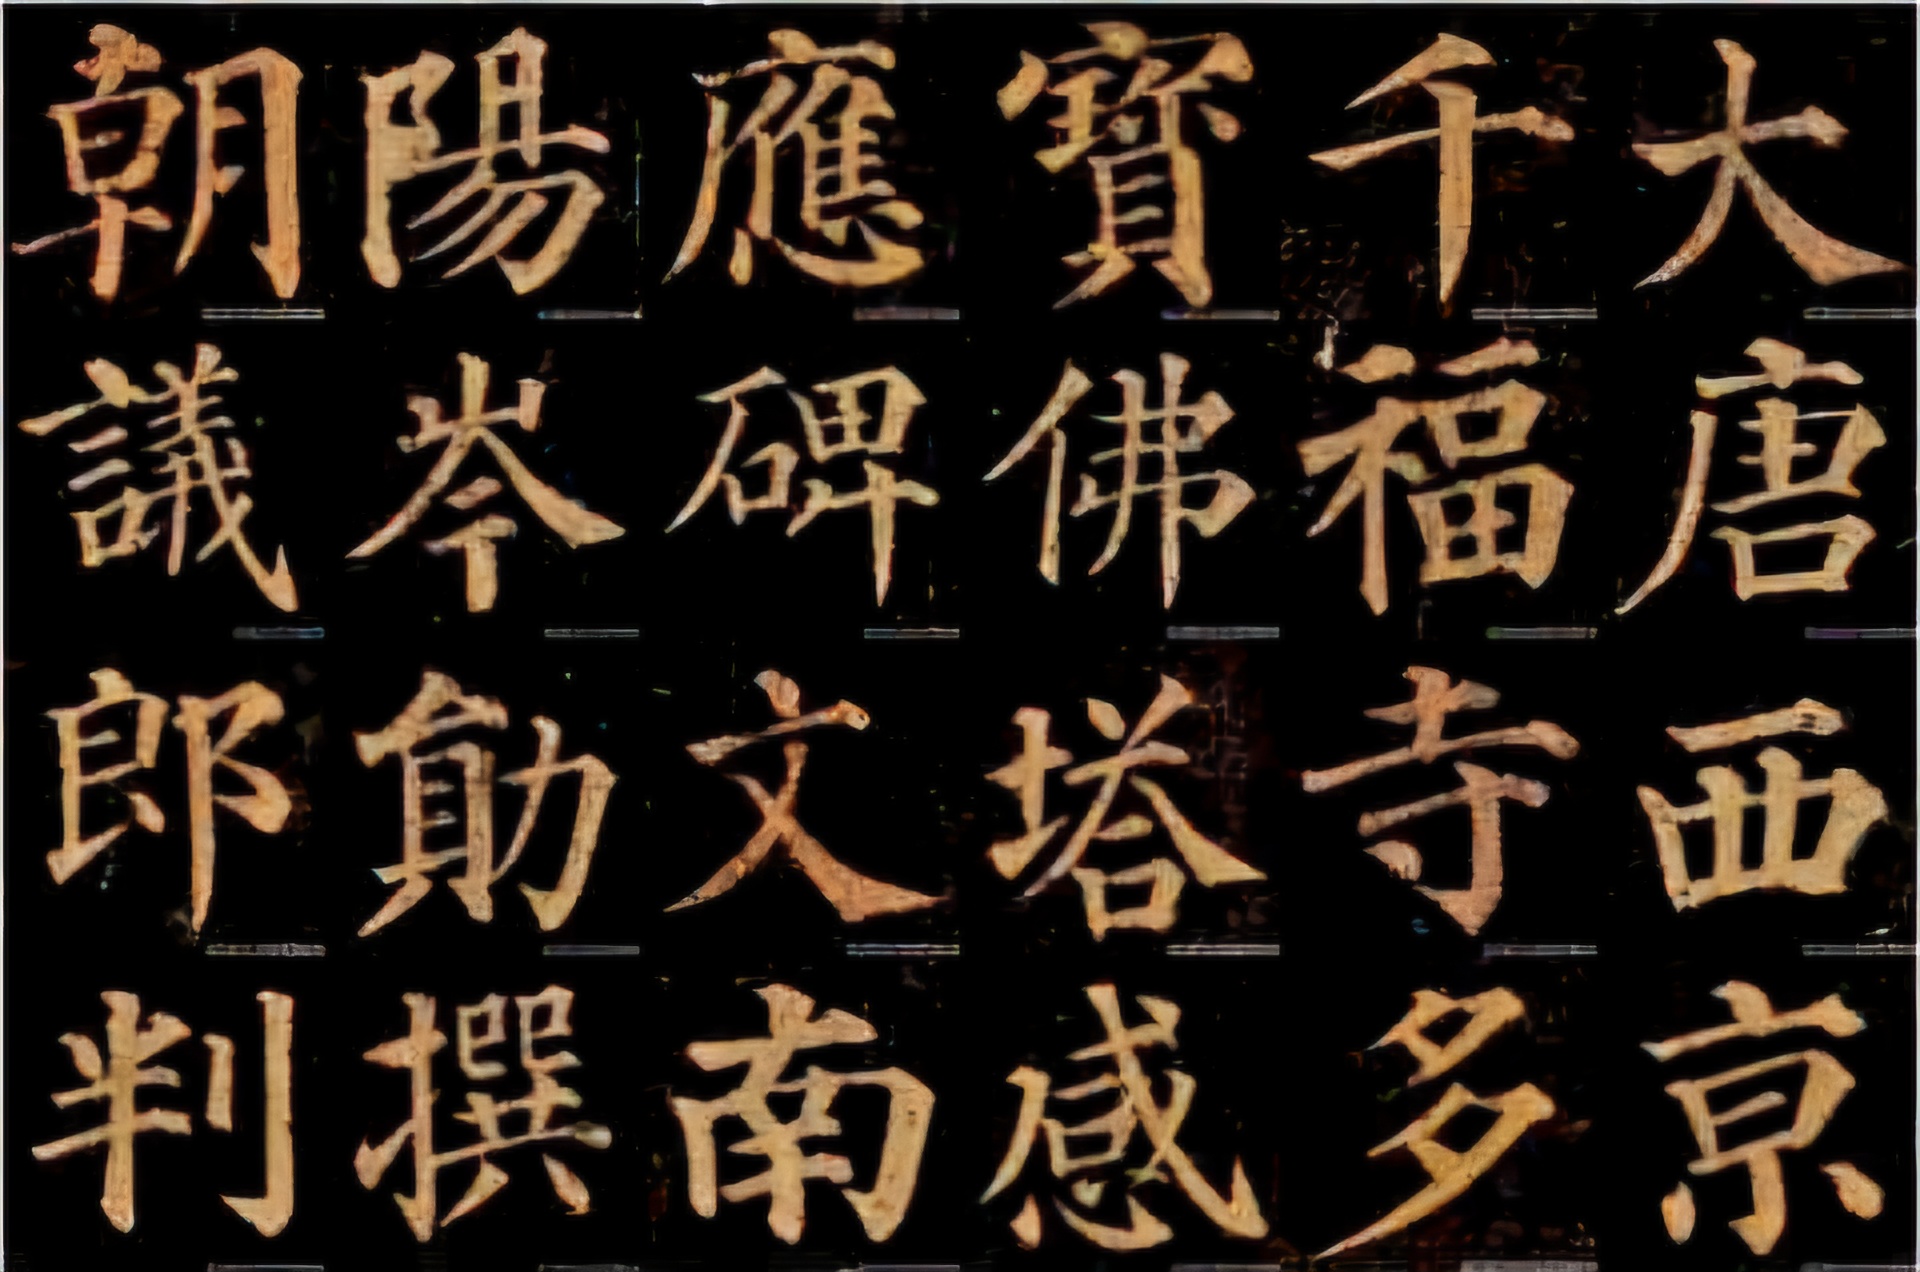 大唐西京
千福寺多
寶佛塔感
應碑文南
陽岑勛撰
朝議郎判